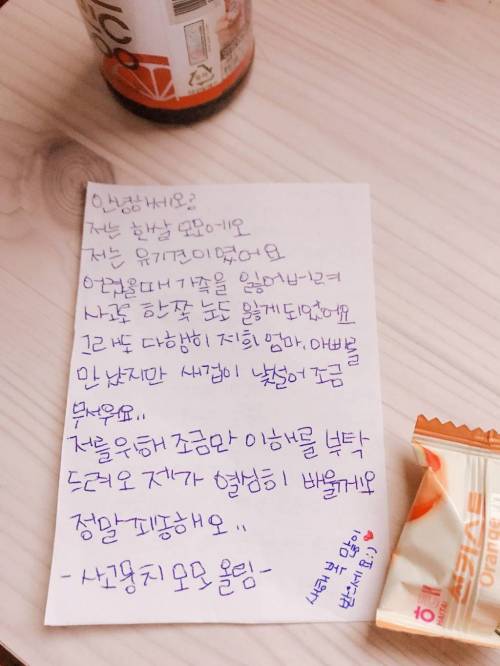 안녕하세요?
저는 한살 모모에요
저는 유기견이였어요
어렸을때 가족을 잃어버려
사고로 한쪽 눈도 잃게되었어요
그래도 다행히 저희 엄마, 아빠를
만났지만 새집이 낯설어 조금
무서워요..
저를위해 조금만 이해를 부탁
드려요 제가 열심히 배울게요
정말 죄송해요..
- 사고뭉치 모모 올림 -
해태
HAITAI
썬키스트
Orange